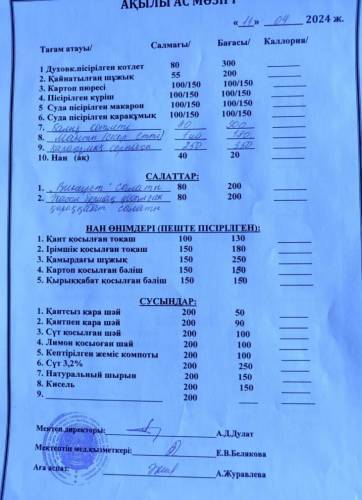 АҚЫЛЫ АС МӘЗІРІ
« 11 » 04 2024 ж.
Тағам атауы/ Салмағы/ Бағасы/ Каллория/
1 Духовк.пісірілген котлет 80 300
2. Қайнатылған шұжық 55 200
3. Картоп пюресі 100/150 100/150
4. Пісірілген күріш 100/150 100/150
5 Суда пісірілген макарон 100/150 100/150
6. Суда пісірілген қарақұмық 100/150 100/150
7. котлеті 80 300
8.
9. 250
10. Нан (ақ) 40 20
САЛАТТАР:
1. „Винегрет" салаты 80 200
2. салаты 80 200
НАН ӨНІМДЕРІ (ПЕШТЕ ПІСІРІЛГЕН):
1. Қант қосылған тоқаш 100 130
2. Ірімшік қосылған тоқаш 150 180
3. Қамырдағы шұжық 150 250
4. Картоп қосылған бәліш 150 150
5. Қырыққабат қосылған бәліш 150 150
СУСЫНДАР:
1. Қантсыз қара шай 200 50
2. Қантпен қара шай 200 90
3. Сүт қосылған шай 200 100
4. Лимон қосыоған шай 200 100
5. Кептірілген жеміс компоты 200 100
6. Сүт 3,2% 200 250
7. Натуральный шырын 200 150
8. Кисель 200 150
9. 200
Мектеп директоры: А.Д.Дулат
Мектептің мед.қызметкері: Е.В.Белякова
Аға аспаз: А.Журавлева